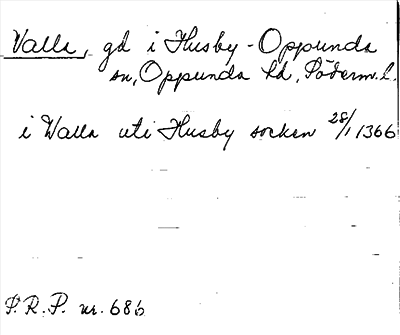 Valla, gd i Husby-Oppunda
sn, Oppunda hd, Söderm. l.
i Walla uti Husby socken 28/1 1366
P.R.P. nr. 686